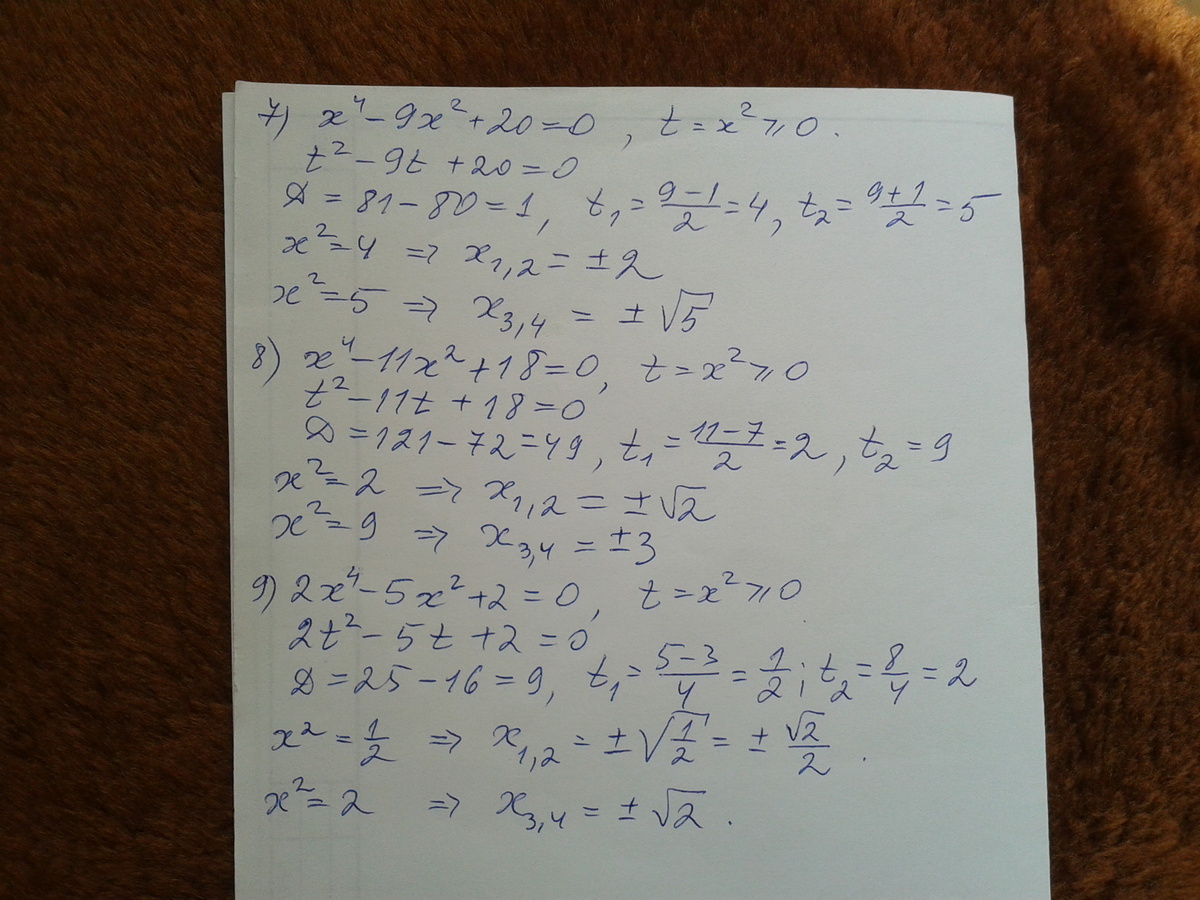 7) x⁴-9x²+20=0, t=x²⩾0.
t²-9t+20=0
D=81-80=1, t₁=(9-1)/2=4, t₂=(9+1)/2=5
x²=4 ⇒ x₁,₂=±2
x²=5 ⇒ x₃,₄=±√5
8) x⁴-11x²+18=0, t=x²⩾0
t²-11t+18=0
D=121-72=49, t₁=(11-7)/2=2, t₂=9
x²=2 ⇒ x₁,₂=±√2
x²=9 ⇒ x₃,₄=±3
9) 2x⁴-5x²+2=0, t=x²⩾0
2t²-5t+2=0
D=25-16=9, t₁=(5-3)/4=1/2; t₂=8/4=2
x²=1/2 ⇒ x₁,₂=±√(1/2)=±√2/2.
x²=2 ⇒ x₃,₄=±√2.